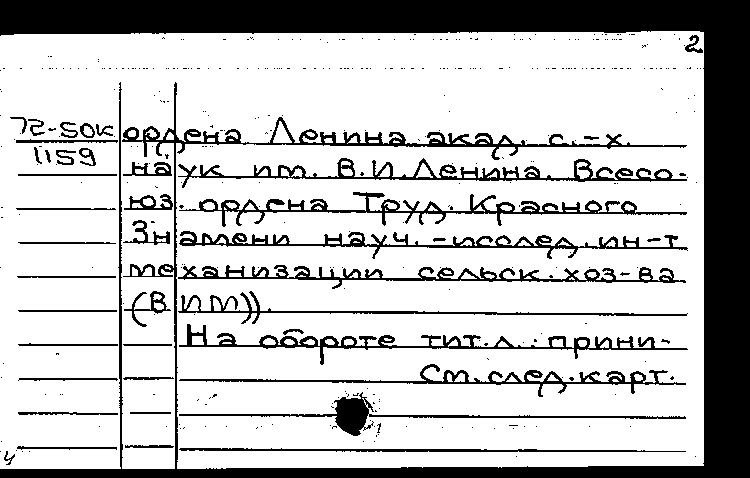 2
72-50к ордена Ленина акад. с.-х.
1159 наук им. В.И.Ленина. Всесо-
юз. ордена Труд. Красного
Знамени науч.-исслед. ин-т
механизации сельск. хоз-ва
(ВИМ)).
На обороте тит.л.: прини-
См. след. карт.